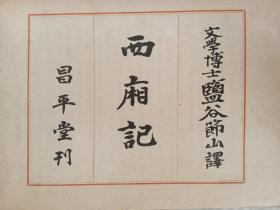 文學博士鹽谷節山譯
西廂記
昌平堂刊